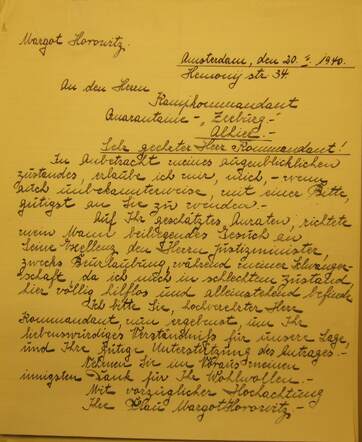 Margot Horowitz.
Amsterdam, den 20. 1940.
Hemony str 34
An den Herrn
Kampkommandant
Quarantaine - "Zeeburg" -
Alhier. -
Sehr geehrter Herr Kommandant!
In Anbetracht meines augenblicklichen
Zustandes, erlaube ich mir, mich, - wenn
auch unbekannterweise, mit einer Bitte,
gütigst an Sie zu wenden. -
Auf Ihr geschätztes Anraten, richtete
mein Mann beiliegendes Gesuch an
Seine Exzellenz den Herrn Justizminister,
zwecks Beurlaubung, während meiner Schwanger-
schaft, da ich mich in schlechtem Zustand,
hier völlig hilflos und alleinstehend befinde.
Ich bitte Sie, hochverehrter Herr
Kommandant, nun ergebenst, um Ihr
liebenswürdiges Verständnis für unsere Lage,
und Ihre gütige Unterstützung des Antrages. -
Nehmen Sie im Voraus meinen
innigsten Dank für Ihr Wohlwollen. -
Mit vorzüglicher Hochachtung
Ihre Frau Margot Horowitz. -